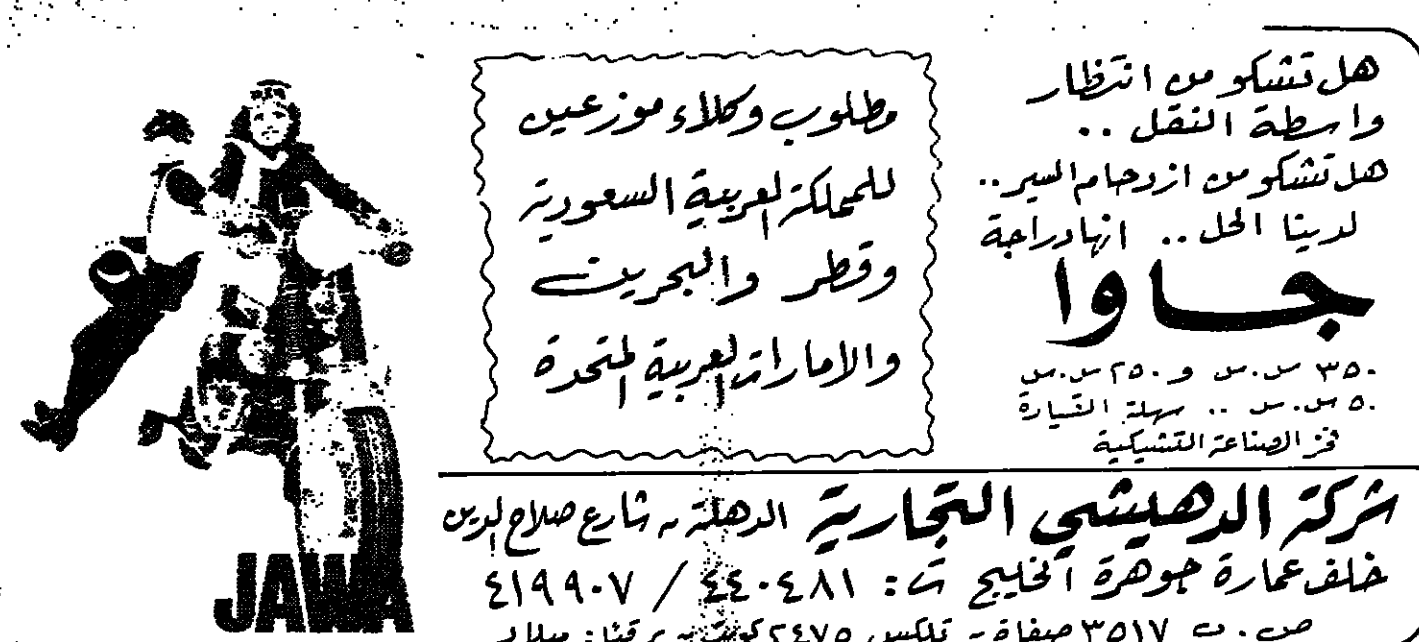 هل تشكو من انتظار
واسطة النقل ..
هل تشكو من ازدحام السير ..
لدينا الحل .. انها دراجة
جاوا
٣٥٠ س.س و ٢٥٠ س.س
٥٠ س.س .. سهلة القيادة
فخر الصناعة التشيكية
مطلوب وكلاء موزعين
للمملكة العربية السعودية
وقطر والبحرين
والامارات العربية المتحدة
JAWA
شركة الدهيشي التجارية الدهلة - شارع صلاح الدين
خلف عمارة جوهرة الخليج ت: ٤٤٠٤٨١ / ٤١٩٩٠٧
ص. ب ٣٥١٧ صفاة - تلكس ٢٤٧٥ كويت - برقيا: